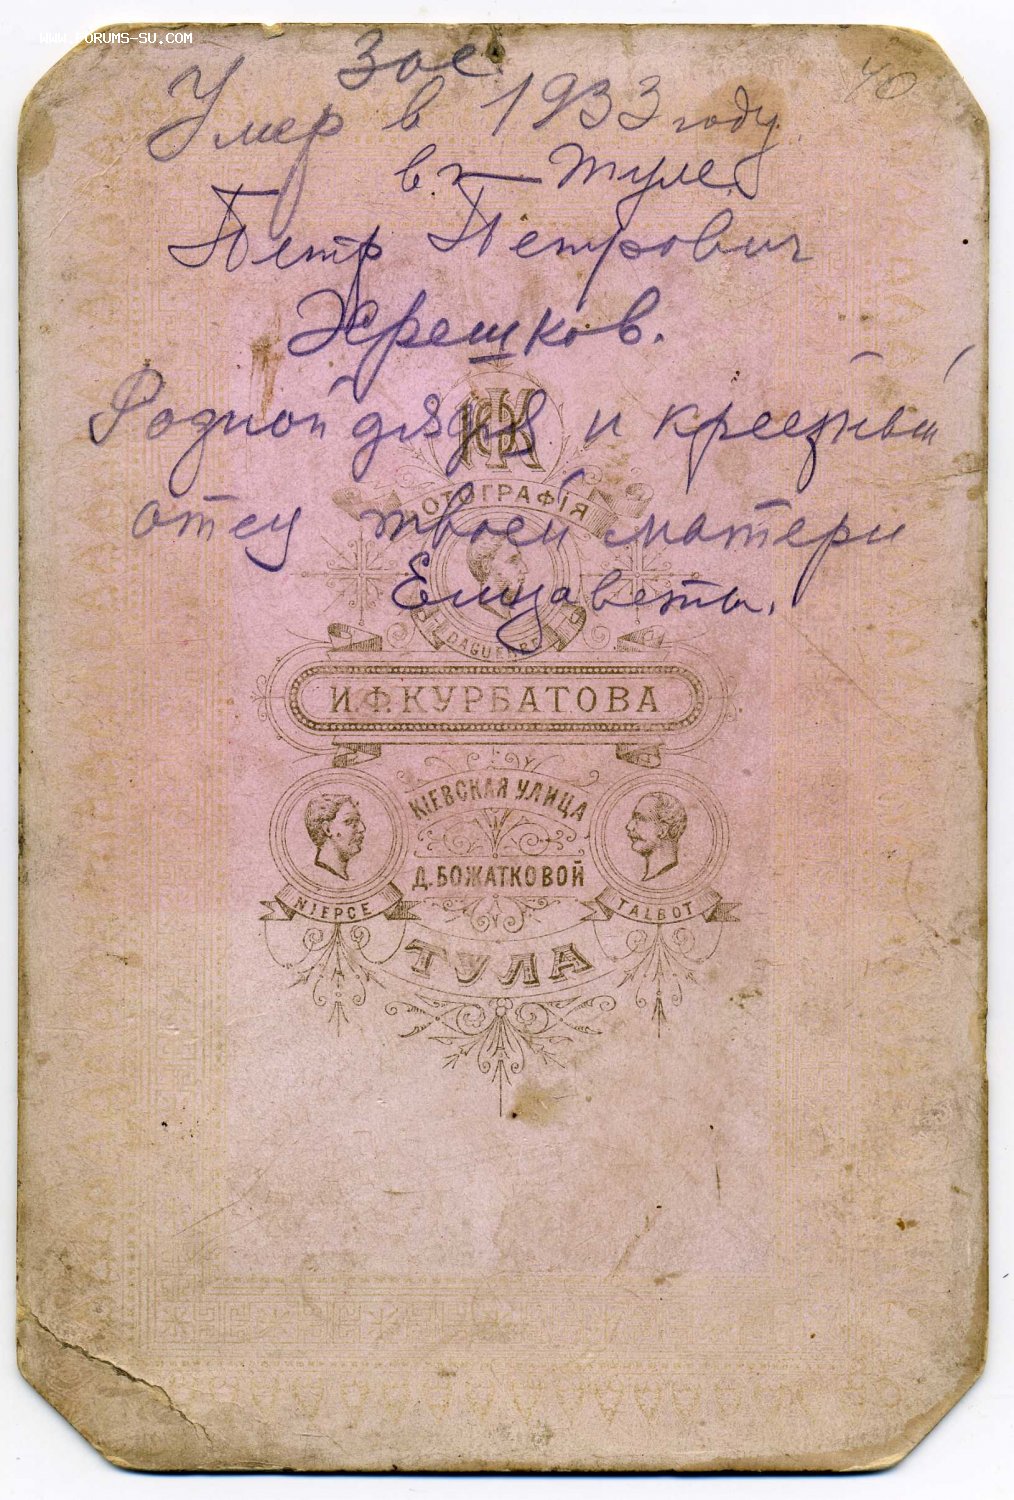 WWW.FORUMS-SU.COM
Зое.
40
Умер в 1933 году.
в г. Туле.
Петр Петрович
Хрешков.
Родной дядя и крестный
отец твоей матери
Елизаветы.
ФК
ФОТОГРАФІЯ
DAGUERRE
И.Ф.КУРБАТОВА
КІЕВСКАЯ УЛИЦА
Д.БОЖАТКОВОЙ
NIEPCE
TALBOT
ТУЛА